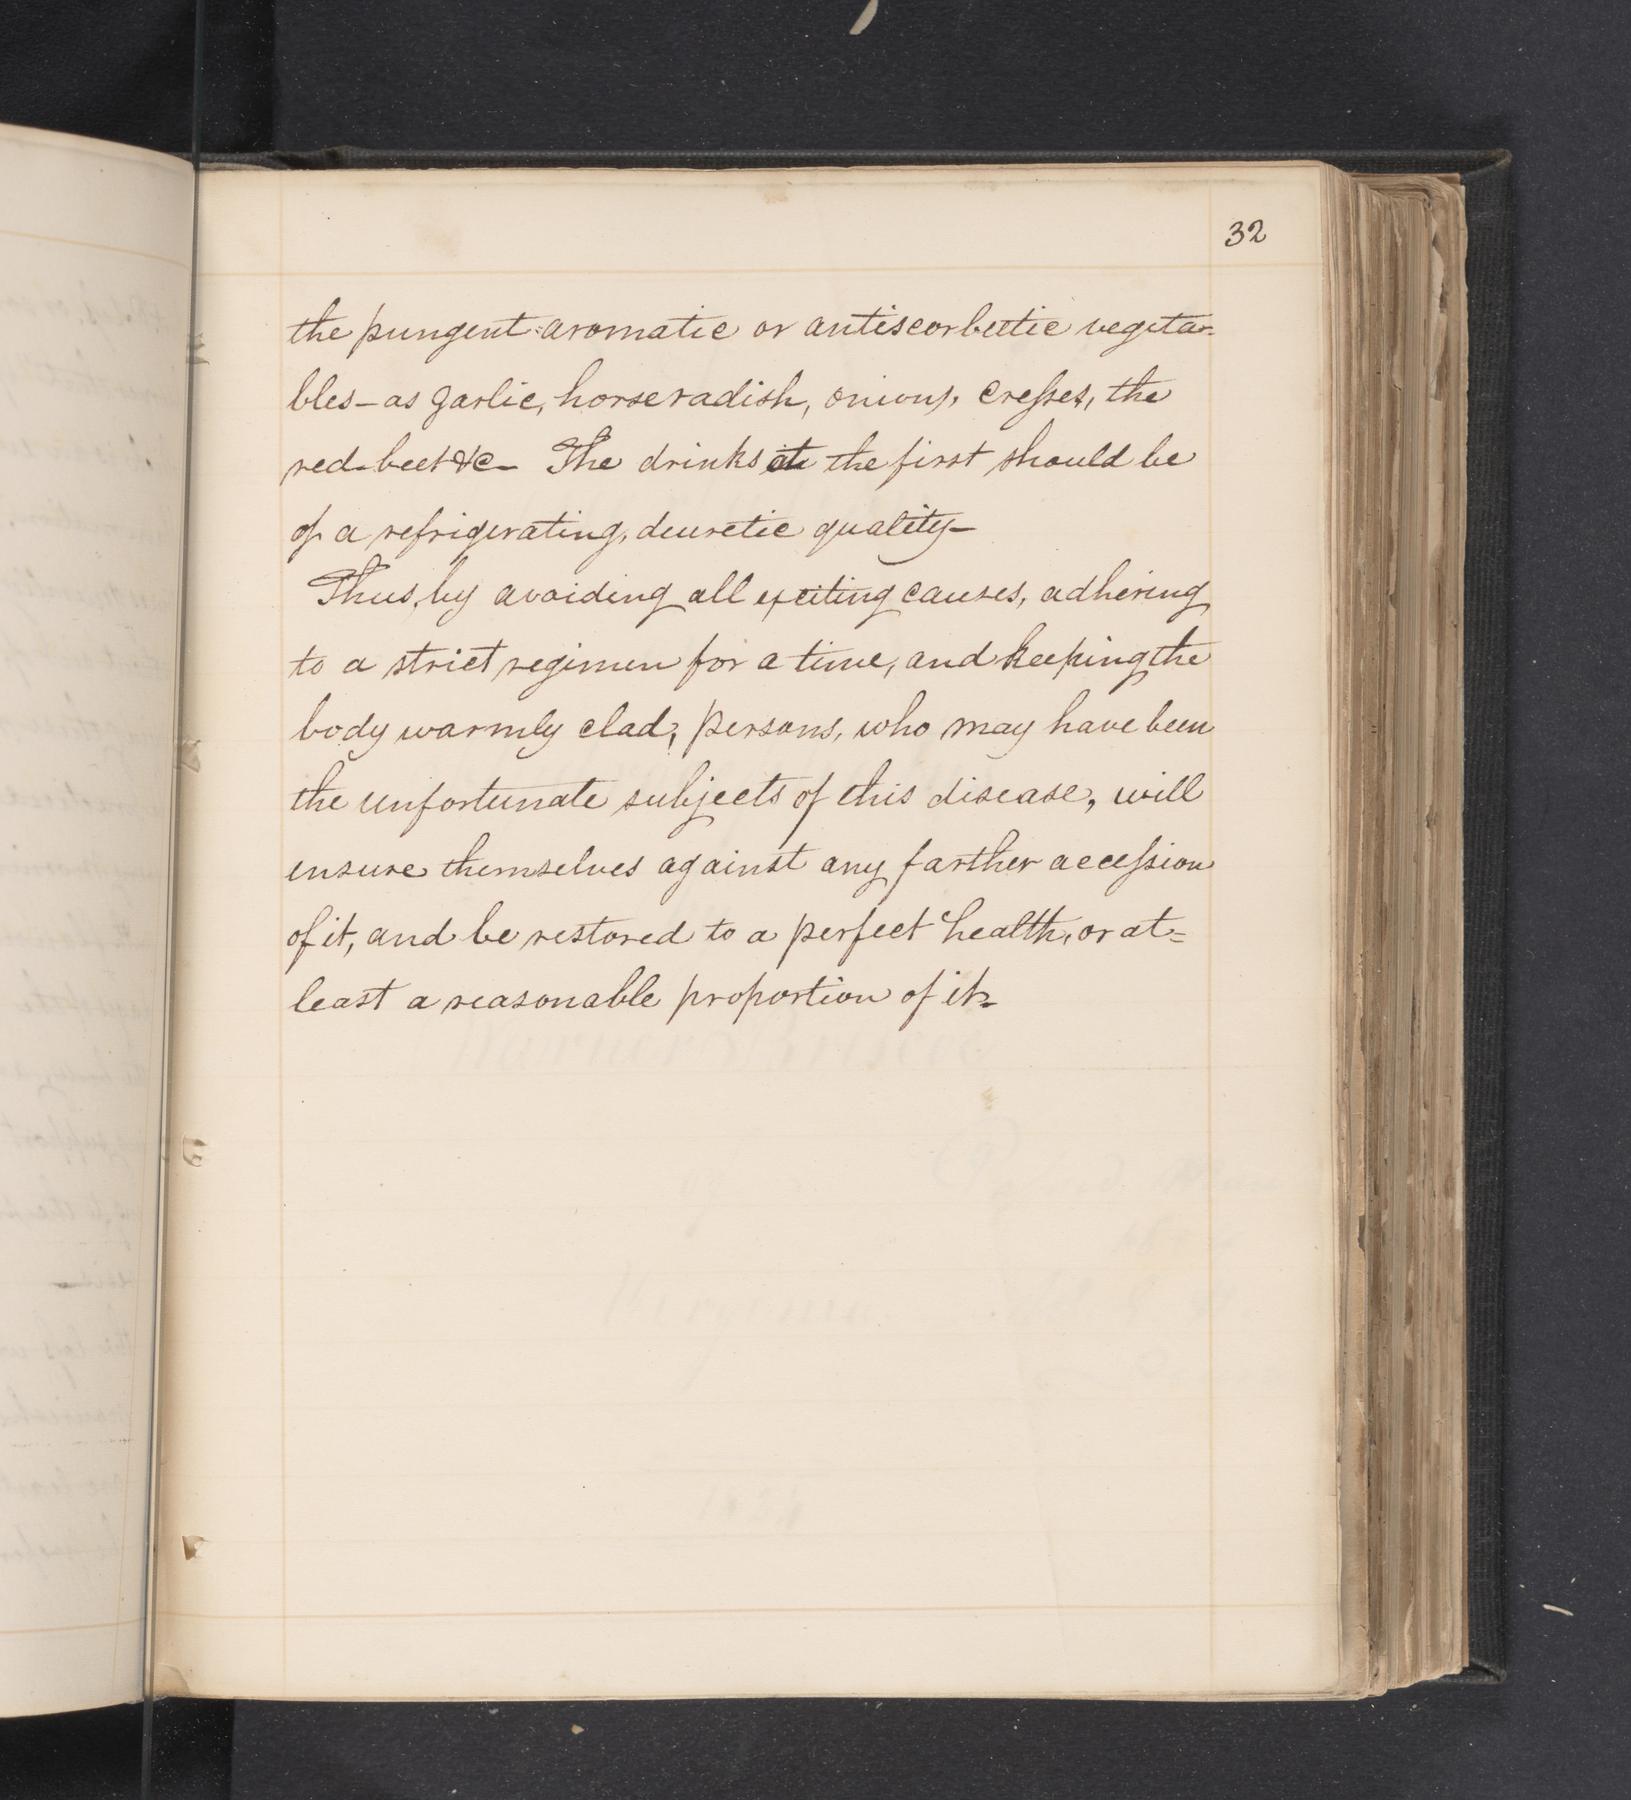 32
the pungent aromatic or antiscorbutic vegeta-
bles - as garlic, horseradish, onions, cresses, the
red-beet &c - The drinks at the first should be
of a refrigerating, diuretic quality -
Thus, by avoiding all exciting causes, adhering
to a strict regimen for a time, and keeping the
body warmly clad, persons, who may have been
the unfortunate subjects of this disease, will
ensure themselves against any farther accession
of it, and be restored to a perfect health, or at=
least a reasonable proportion of it =